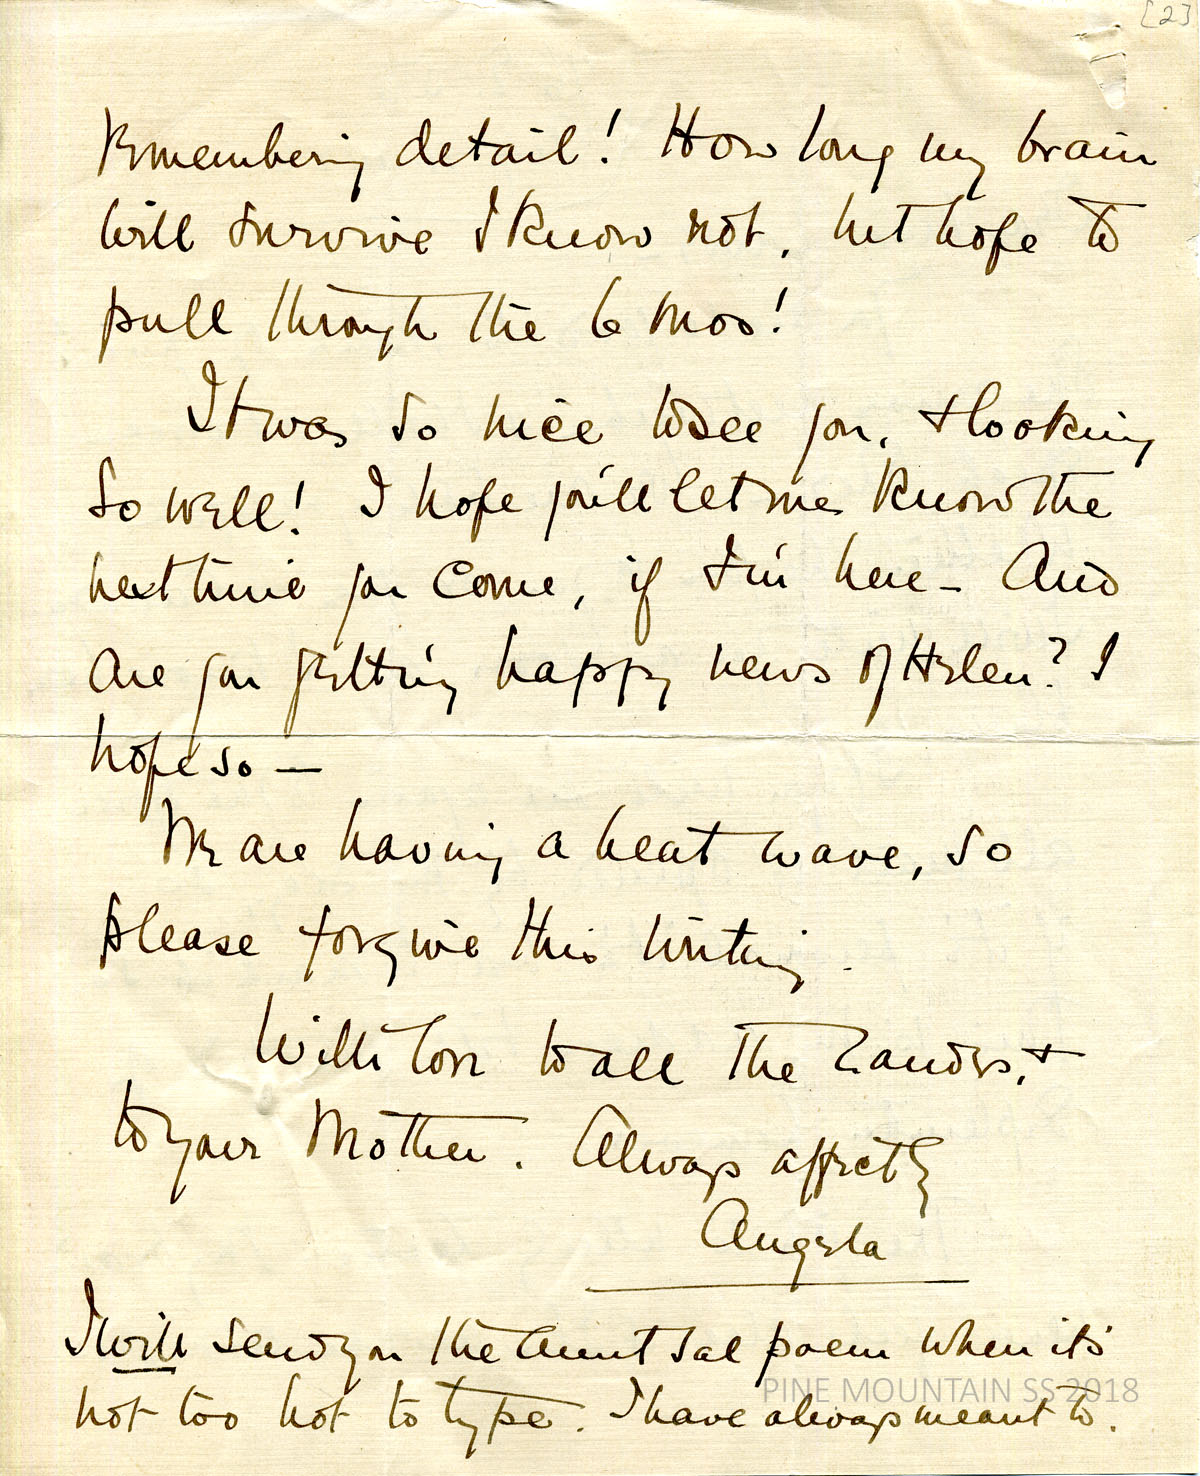 [2]
Remembering detail! How long my brain
will survive I know not, but hope to
pull through the 6 mos!
It was so nice to see you, & looking
so well! I hope you'll let me know the
next time you come, if I'm here - And
are you getting happy news of Helen? I
hope so —
We are having a heat wave, so
please forgive this writing.
With love to all the Zandes, &
to your Mother. Always affectly
Angela
I will send you the Aunt Sal poem when it's
not too hot to type. I have always meant to.
PINE MOUNTAIN SS 2018